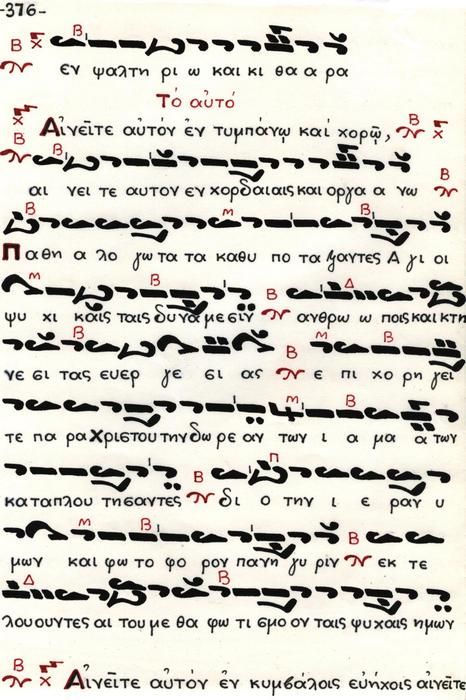 -376-
εν ψαλτη ρι ω και κι θα α ρα
Τὸ αὐτό
Αἰνεῖτε αὐτὸν ἐν τυμπάνῳ καί χορῷ,
αι νει τε αυτον εν χορδαιαις και οργα α νω
Παθη α λο γω τα τα καθυ πο τα ξαντες Α γι οι
ψυ χι καῖς ταις δυνα με σιν ανθρω ω ποις και κτη
νε σι τας ευερ γε σι ας ε πι χο ρη γει
τε πα ρα Χριστου την δω ρε αν των ι α μα α των
καταπλου τησαντες δι ο την ι ε ραν υ
μων και φω το φο ρον πανη γυ ριν εκ τε
λουουντες αι του με θα φω τι σμο ον ταις ψυχαις ημων
Αἰνεῖτε αὐτὸν ἐν κυμβάλοις εὐήχοις αἰνεῖτε